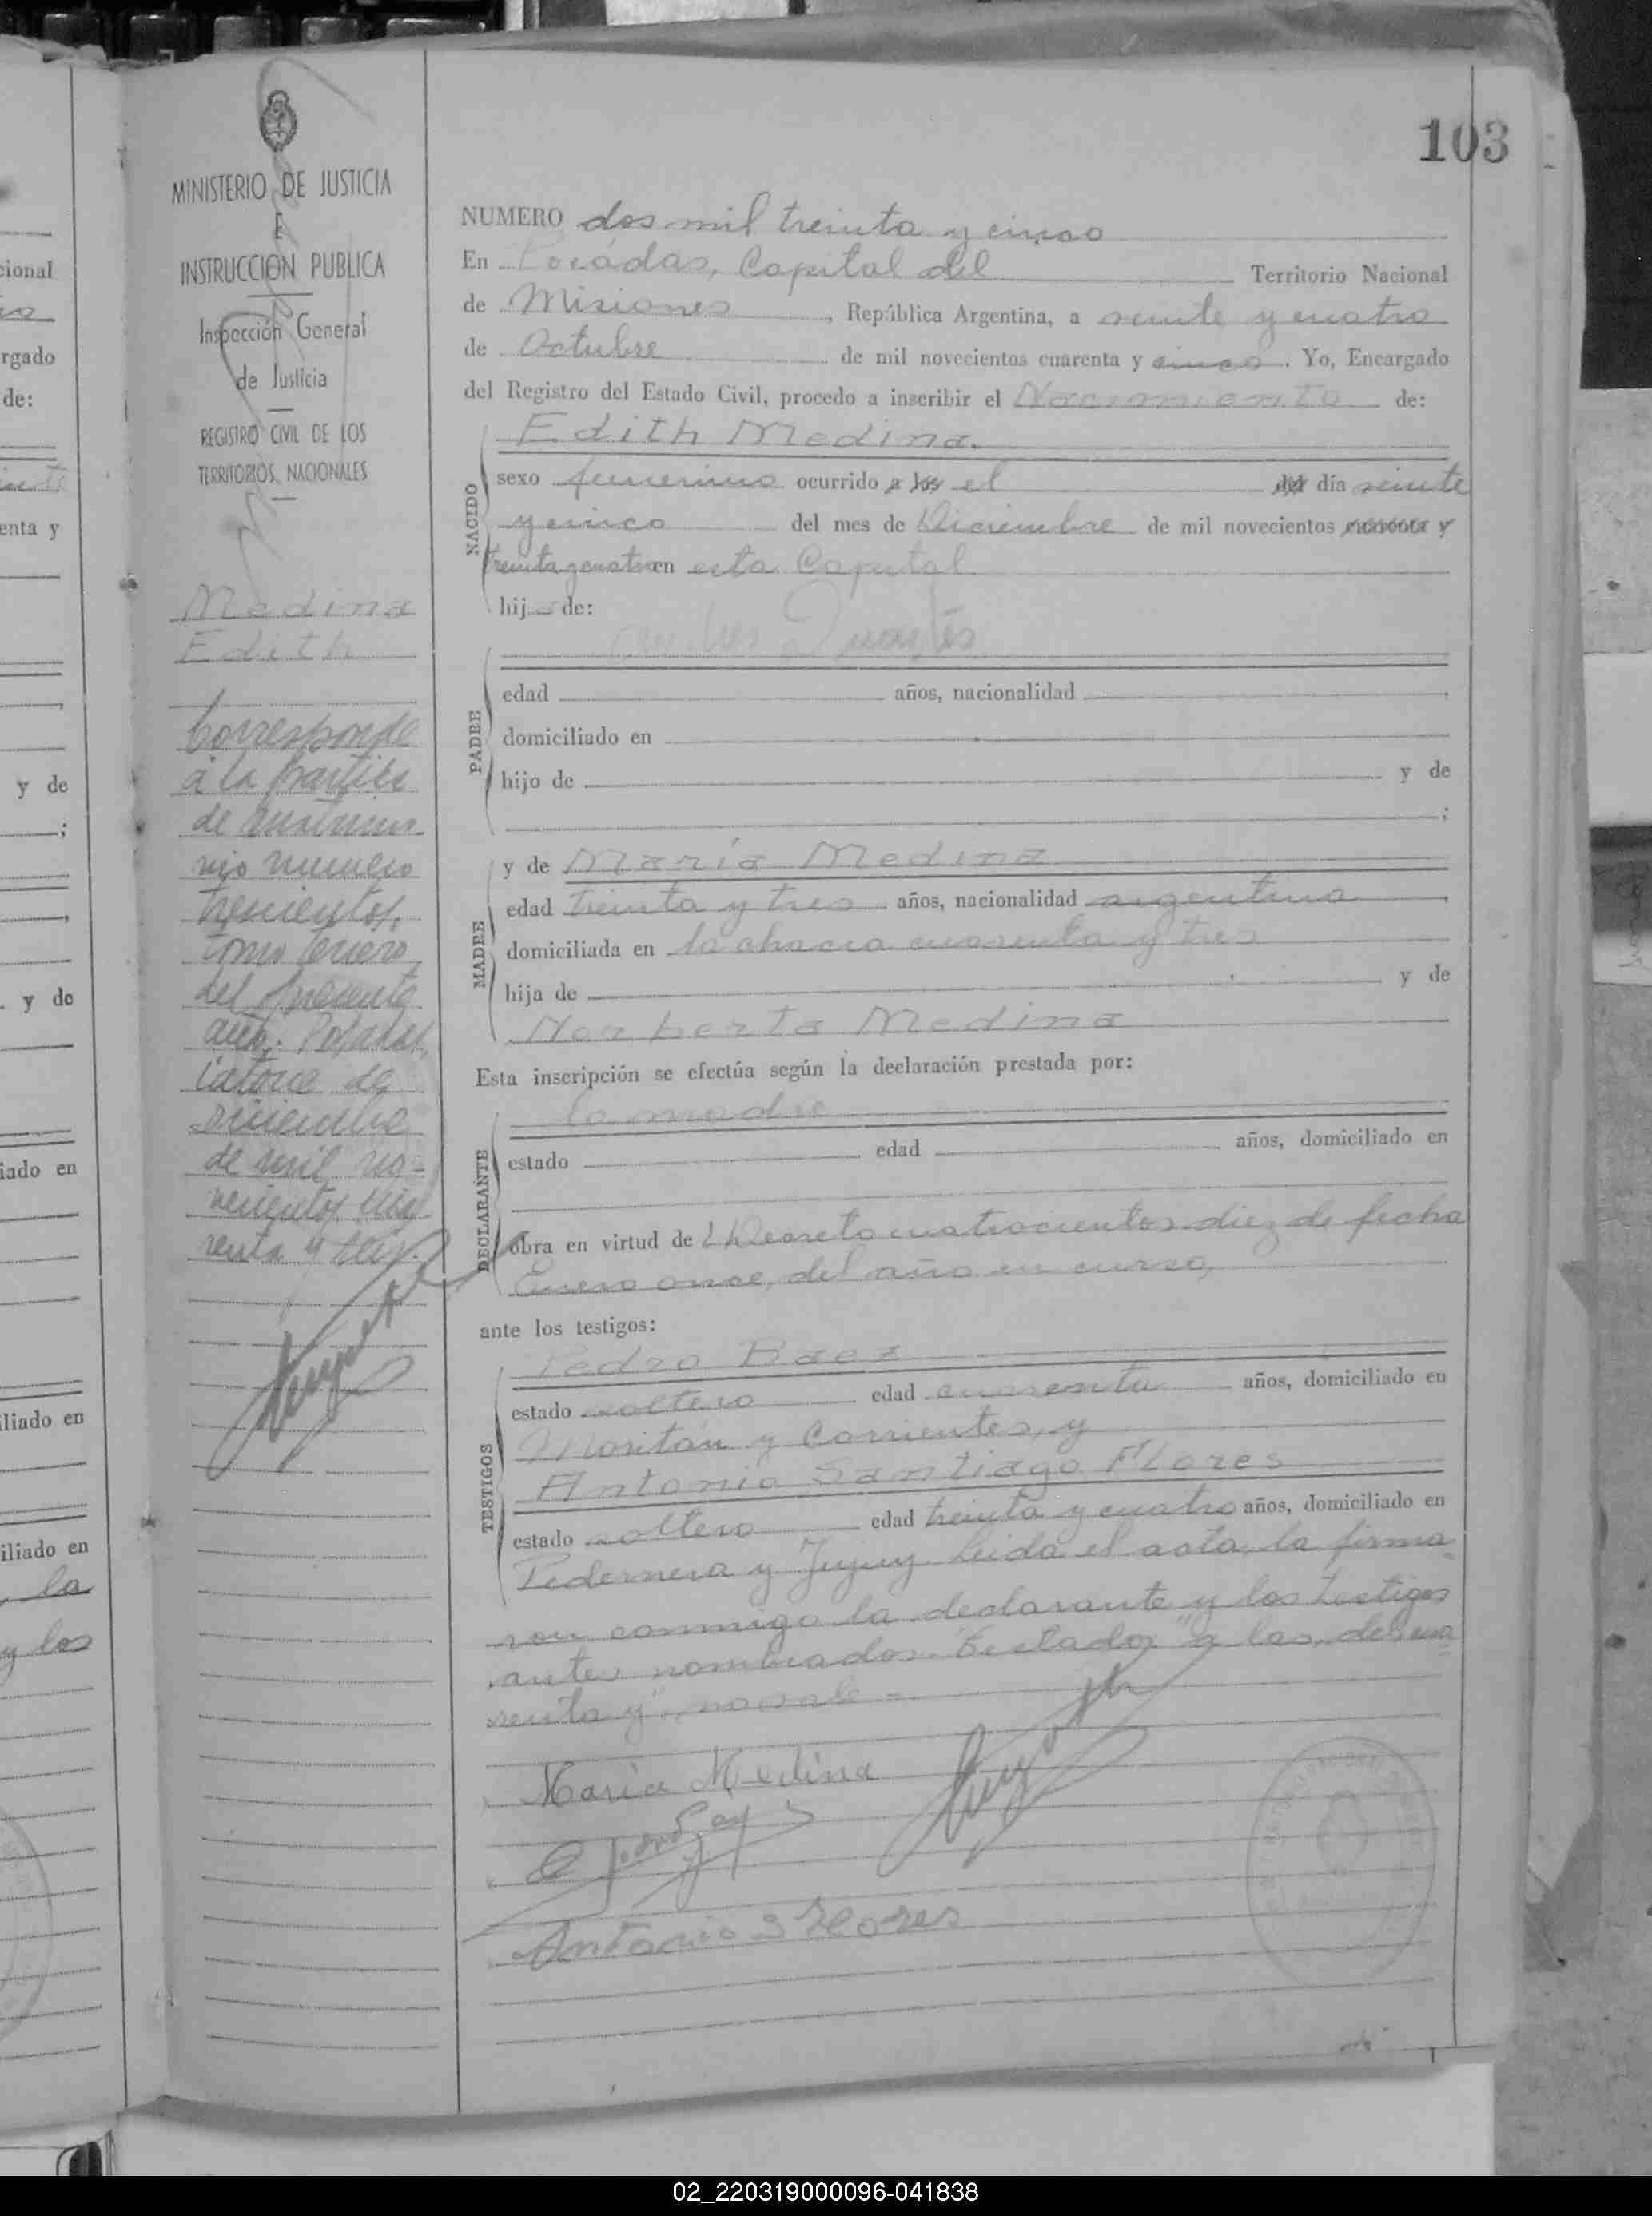 103
MINISTERIO DE JUSTICIA
E
INSTRUCCION PUBLICA
Inspección General
de Justicia
REGISTRO CIVIL DE LOS
TERRITORIOS NACIONALES
Medina
Edith
Corresponde
a la partida
de matrimo
nio numero
trescientos,
tomo tercero
del presente
año. Posadas,
catorce de
diciembre
de mil no-
vecientos cua
renta y seis.
NUMERO dos mil treinta y cinco
En Posádas, Capital del Territorio Nacional
de Misiones, República Argentina, a veinte y cuatro
de Octubre de mil novecientos cuarenta y cinco. Yo, Encargado
del Registro del Estado Civil, procedo a inscribir el Nacimiento de:
Edith Medina.
NACIDO
sexo femenino ocurrido a las el del día veinte
y cinco del mes de Diciembre de mil novecientos cuarenta y
treinta y cuatro en esta Capital
hija de:
PADRE
edad años, nacionalidad
domiciliado en
hijo de y de
;
MADRE
y de María Medina
edad treinta y tres años, nacionalidad argentina
domiciliada en la chacra cuarenta y tres
hija de y de
Norberta Medina
Esta inscripción se efectúa según la declaración prestada por:
DECLARANTE
la madre
estado edad años, domiciliado en
obra en virtud de l Decreto cuatrocientos diez de fecha
Enero once, del año en curso,
ante los testigos:
TESTIGOS
Pedro Baez
estado soltero edad cuarenta años, domiciliado en
y Corrientes, y
Antonio Santiago Flores
estado soltero edad treinta y cuatro años, domiciliado en
Pedernera y Jujuy. Leida el acta la firma
ron conmigo la declarante y los testigos
antes nombrados. Testados "a las, del, cua
renta y", no vale -
Maria Medina
Antonio S Flores
cional
rgado
de:
enta y
y de
;
y de
iado en
iliado en
iliado en
la
y los
02_220319000096-041838